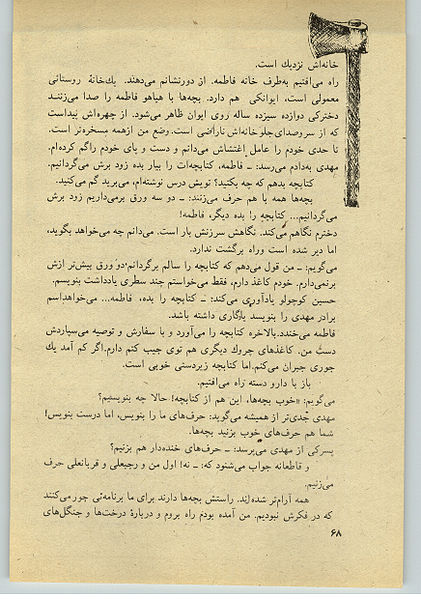 خانه‌اش نزدیك است.
راه می‌افتیم به‌طرف خانه فاطمه. از دورنشانم می‌دهند. یك‌خانهٔ روستائی
معمولی است، ایوانکی هم دارد. بچه‌ها با هیاهو فاطمه را صدا می‌زنند
دخترکی دوازده سیزده ساله روی ایوان ظاهر می‌شود. از چهره‌اش پیداست
که از سروصدای‌جلوخانه‌اش ناراضی است. وضع من ازهمه مسخره‌تر است.
تا حدی خودم را عامل اغتشاش می‌دانم و دست و پای خودم راگم کرده‌ام.
مهدی به‌دادم می‌رسد: ــ فاطمه، کتابچه‌ات را بیار بده زود برش می‌گردانیم.
کتابچه بدهم که چه بکنید؟ تویش درس نوشته‌ام، می‌برید گم می‌کنید.
بچه‌ها همه با هم حرف می‌زنند: ــ دو سه ورق برمی‌داریم زود برش
می‌گردانیم... کتابچه را بده دیگر، فاطمه!
دخترم نگاهم می‌کند. نگاهش سرزنش بار است. می‌دانم چه می‌خواهد بگوید،
اما دیر شده است وراه برگشت ندارد.
می‌گویم: ــ من قول می‌دهم که کتابچه را سالم برگردانم. دو ورق بیش‌تر ازش
برنمی‌دارم. خودم کاغذ دارم، فقط می‌خواستم چند سطری یادداشت بنویسم.
حسین کوچولو یادآوری می‌کند: ــ کتابچه را بده، فاطمه... می‌خواهداسم
برادر مهدی را بنویسد یادگاری داشته باشد.
فاطمه می‌خندد. بالاخره کتابچه را می‌آورد و با سفارش و توصیه می‌سپاردش
دست من. کاغذهای چروك دیگری هم توی جیب کتم دارم.اگر کم آمد یك
جوری جبران می‌کنم.اما کتابچه زیردستی خوبی است.
باز با دارو دسته راه می‌افتیم.
می‌گویم: «خوب بچه‌ها، این هم از کتابچه! حالا چه بنویسیم؟
مهدی جدی‌تر از همیشه می‌گوید: حرف‌های ما را بنویس، اما درست بنویس!
شما هم حرف‌های خوب بزنید بچه‌ها.
پسرکی از مهدی می‌پرسد: ــ حرف‌های خنده‌دار هم بزنیم؟
و قاطعانه جواب می‌شنود که: ــ نه! اول من و رجبعلی و قربانعلی حرف
می‌زنیم.
همه آرام‌تر شده‌اند. راستش بچه‌ها دارند برای ما برنامه‌ئی جور می‌کنند
که در فکرش نبودیم. من آمده بودم راه بروم و دربارهٔ درخت‌ها و جنگل‌های
۶۸